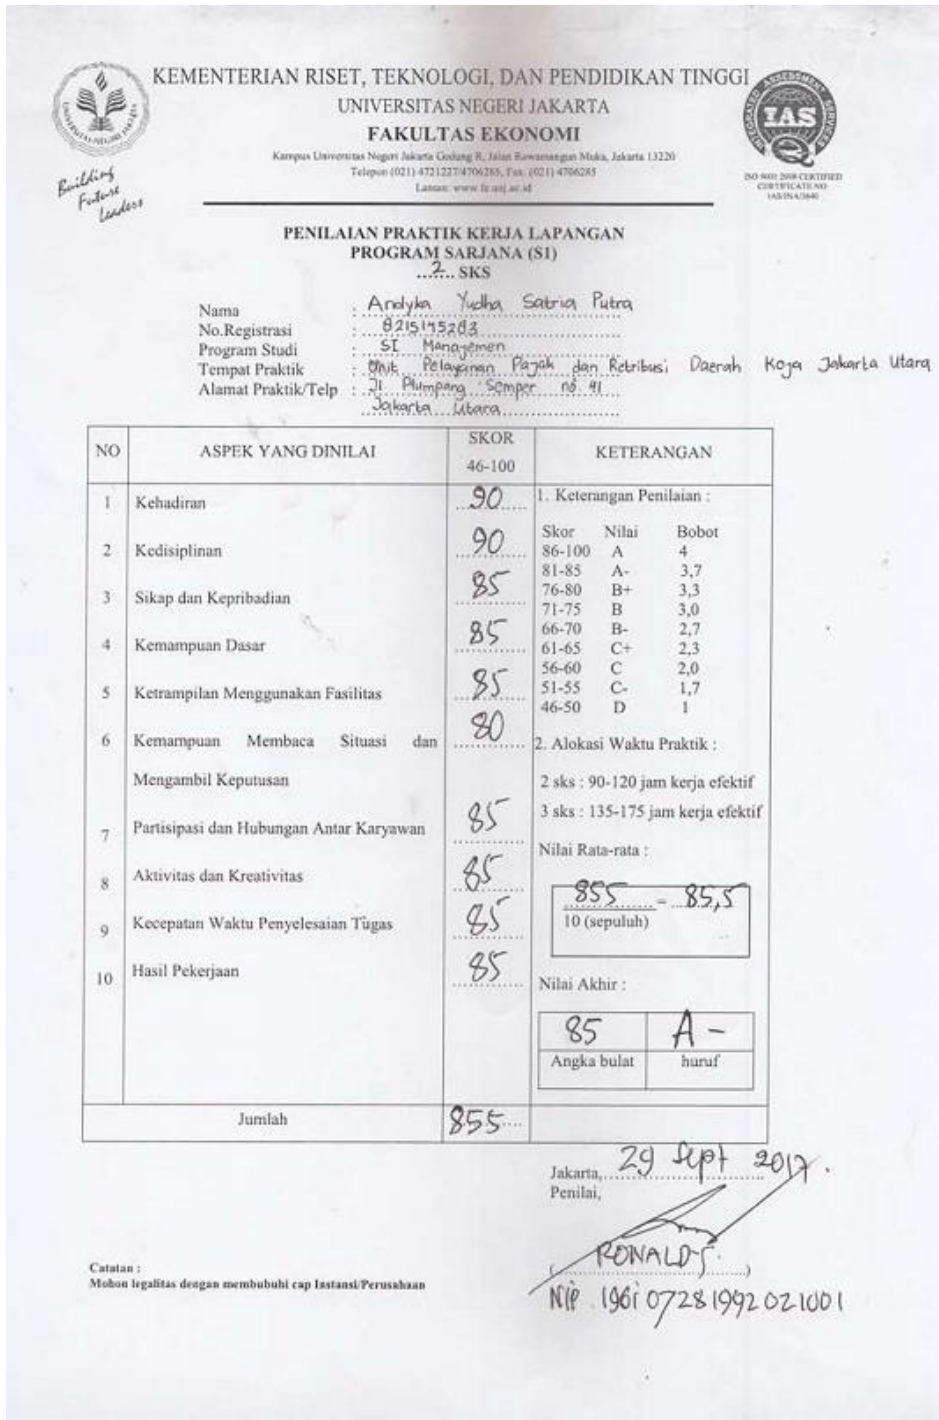 KEMENTERIAN RISET, TEKNOLOGI, DAN PENDIDIKAN TINGGI
UNIVERSITAS NEGERI JAKARTA
FAKULTAS EKONOMI
Kampus Universitas Negeri Jakarta Gedung R, Jalan Rawamangun Muka, Jakarta 13220
Telepon (021) 4721227/4706285, Fax: (021) 4706285
Laman: www.fe.unj.ac.id
UNIVERSITAS NEGERI JAKARTA
Building
Future
Leaders
INTEGRATED ASSESSMENT SERVICES
IAS
ISO 9001:2008 CERTIFIED
CERTIFICATE NO
IAS/INA/3640
PENILAIAN PRAKTIK KERJA LAPANGAN
PROGRAM SARJANA (S1)
...2... SKS
Nama : Andyka Yudha Satria Putra
No.Registrasi : 8215145283
Program Studi : S1 Manajemen
Tempat Praktik : Unit Pelayanan Pajak dan Retribusi Daerah Koja Jakarta Utara
Alamat Praktik/Telp : Jl Plumpang Semper no 41
Jakarta Utara
NO ASPEK YANG DINILAI SKOR 46-100 KETERANGAN
1 Kehadiran 90
2 Kedisiplinan 90
3 Sikap dan Kepribadian 85
4 Kemampuan Dasar 85
5 Ketrampilan Menggunakan Fasilitas 85
6 Kemampuan Membaca Situasi dan 80
Mengambil Keputusan
7 Partisipasi dan Hubungan Antar Karyawan 85
8 Aktivitas dan Kreativitas 85
9 Kecepatan Waktu Penyelesaian Tugas 85
10 Hasil Pekerjaan 85
1. Keterangan Penilaian :
Skor Nilai Bobot
86-100 A 4
81-85 A- 3,7
76-80 B+ 3,3
71-75 B 3,0
66-70 B- 2,7
61-65 C+ 2,3
56-60 C 2,0
51-55 C- 1,7
46-50 D 1
2. Alokasi Waktu Praktik :
2 sks : 90-120 jam kerja efektif
3 sks : 135-175 jam kerja efektif
Nilai Rata-rata :
855 = 85,5
10 (sepuluh)
Nilai Akhir :
85 A -
Angka bulat huruf
Jumlah 855
Jakarta, 29 Sept 2017.
Penilai,
(RONALD S.)
Nip. 196107281992021001
Catatan :
Mohon legalitas dengan membubuhi cap Instansi/Perusahaan